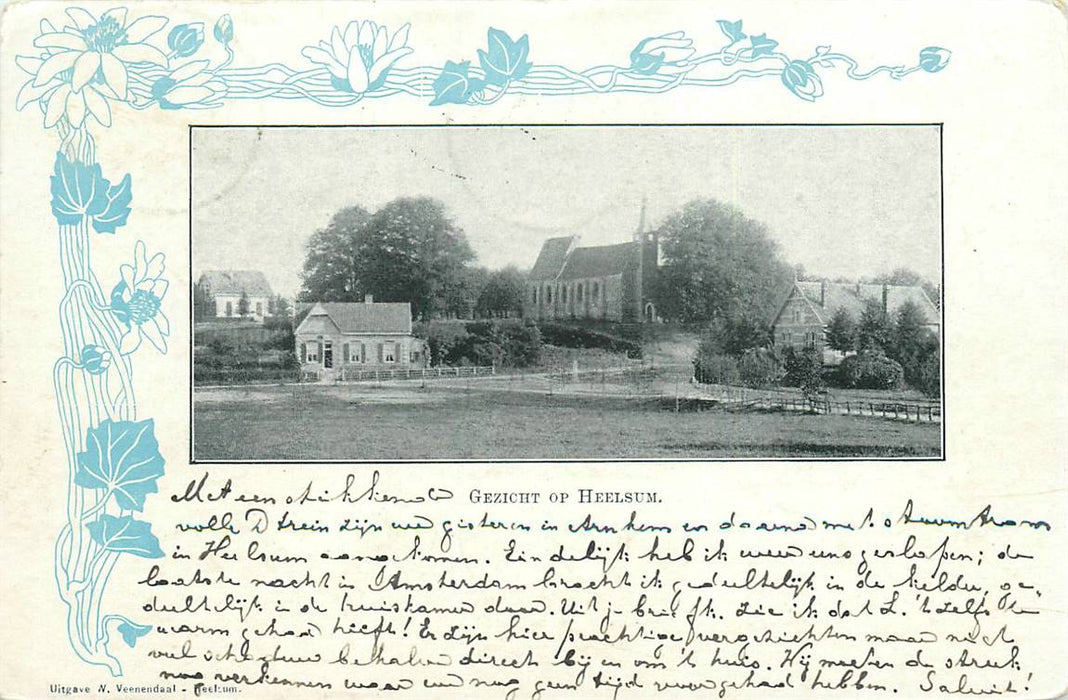 GEZICHT OP HEELSUM.
Met een stikkend
volle D trein zijn we gisteren in Arnhem en daarna met stoomtram
in Heelsum aangekomen. Eindelijk heb ik weer eens geslapen; de
laatste nacht in Amsterdam bracht ik gedeeltelijk in de kelder, ge-
deeltelijk in de huiskamer door. Uit je brief zie ik dat L. 't zelfs te
warm gehad heeft! Er zijn hier prachtige vergezichten maar niet
veel schaduw behalve direct bij en om 't huis. Wij moeten de streek
nog verkennen waar we nog geen tijd voor gehad hebben. Saluut!
Uitgave N. Veenendaal - Heelsum.